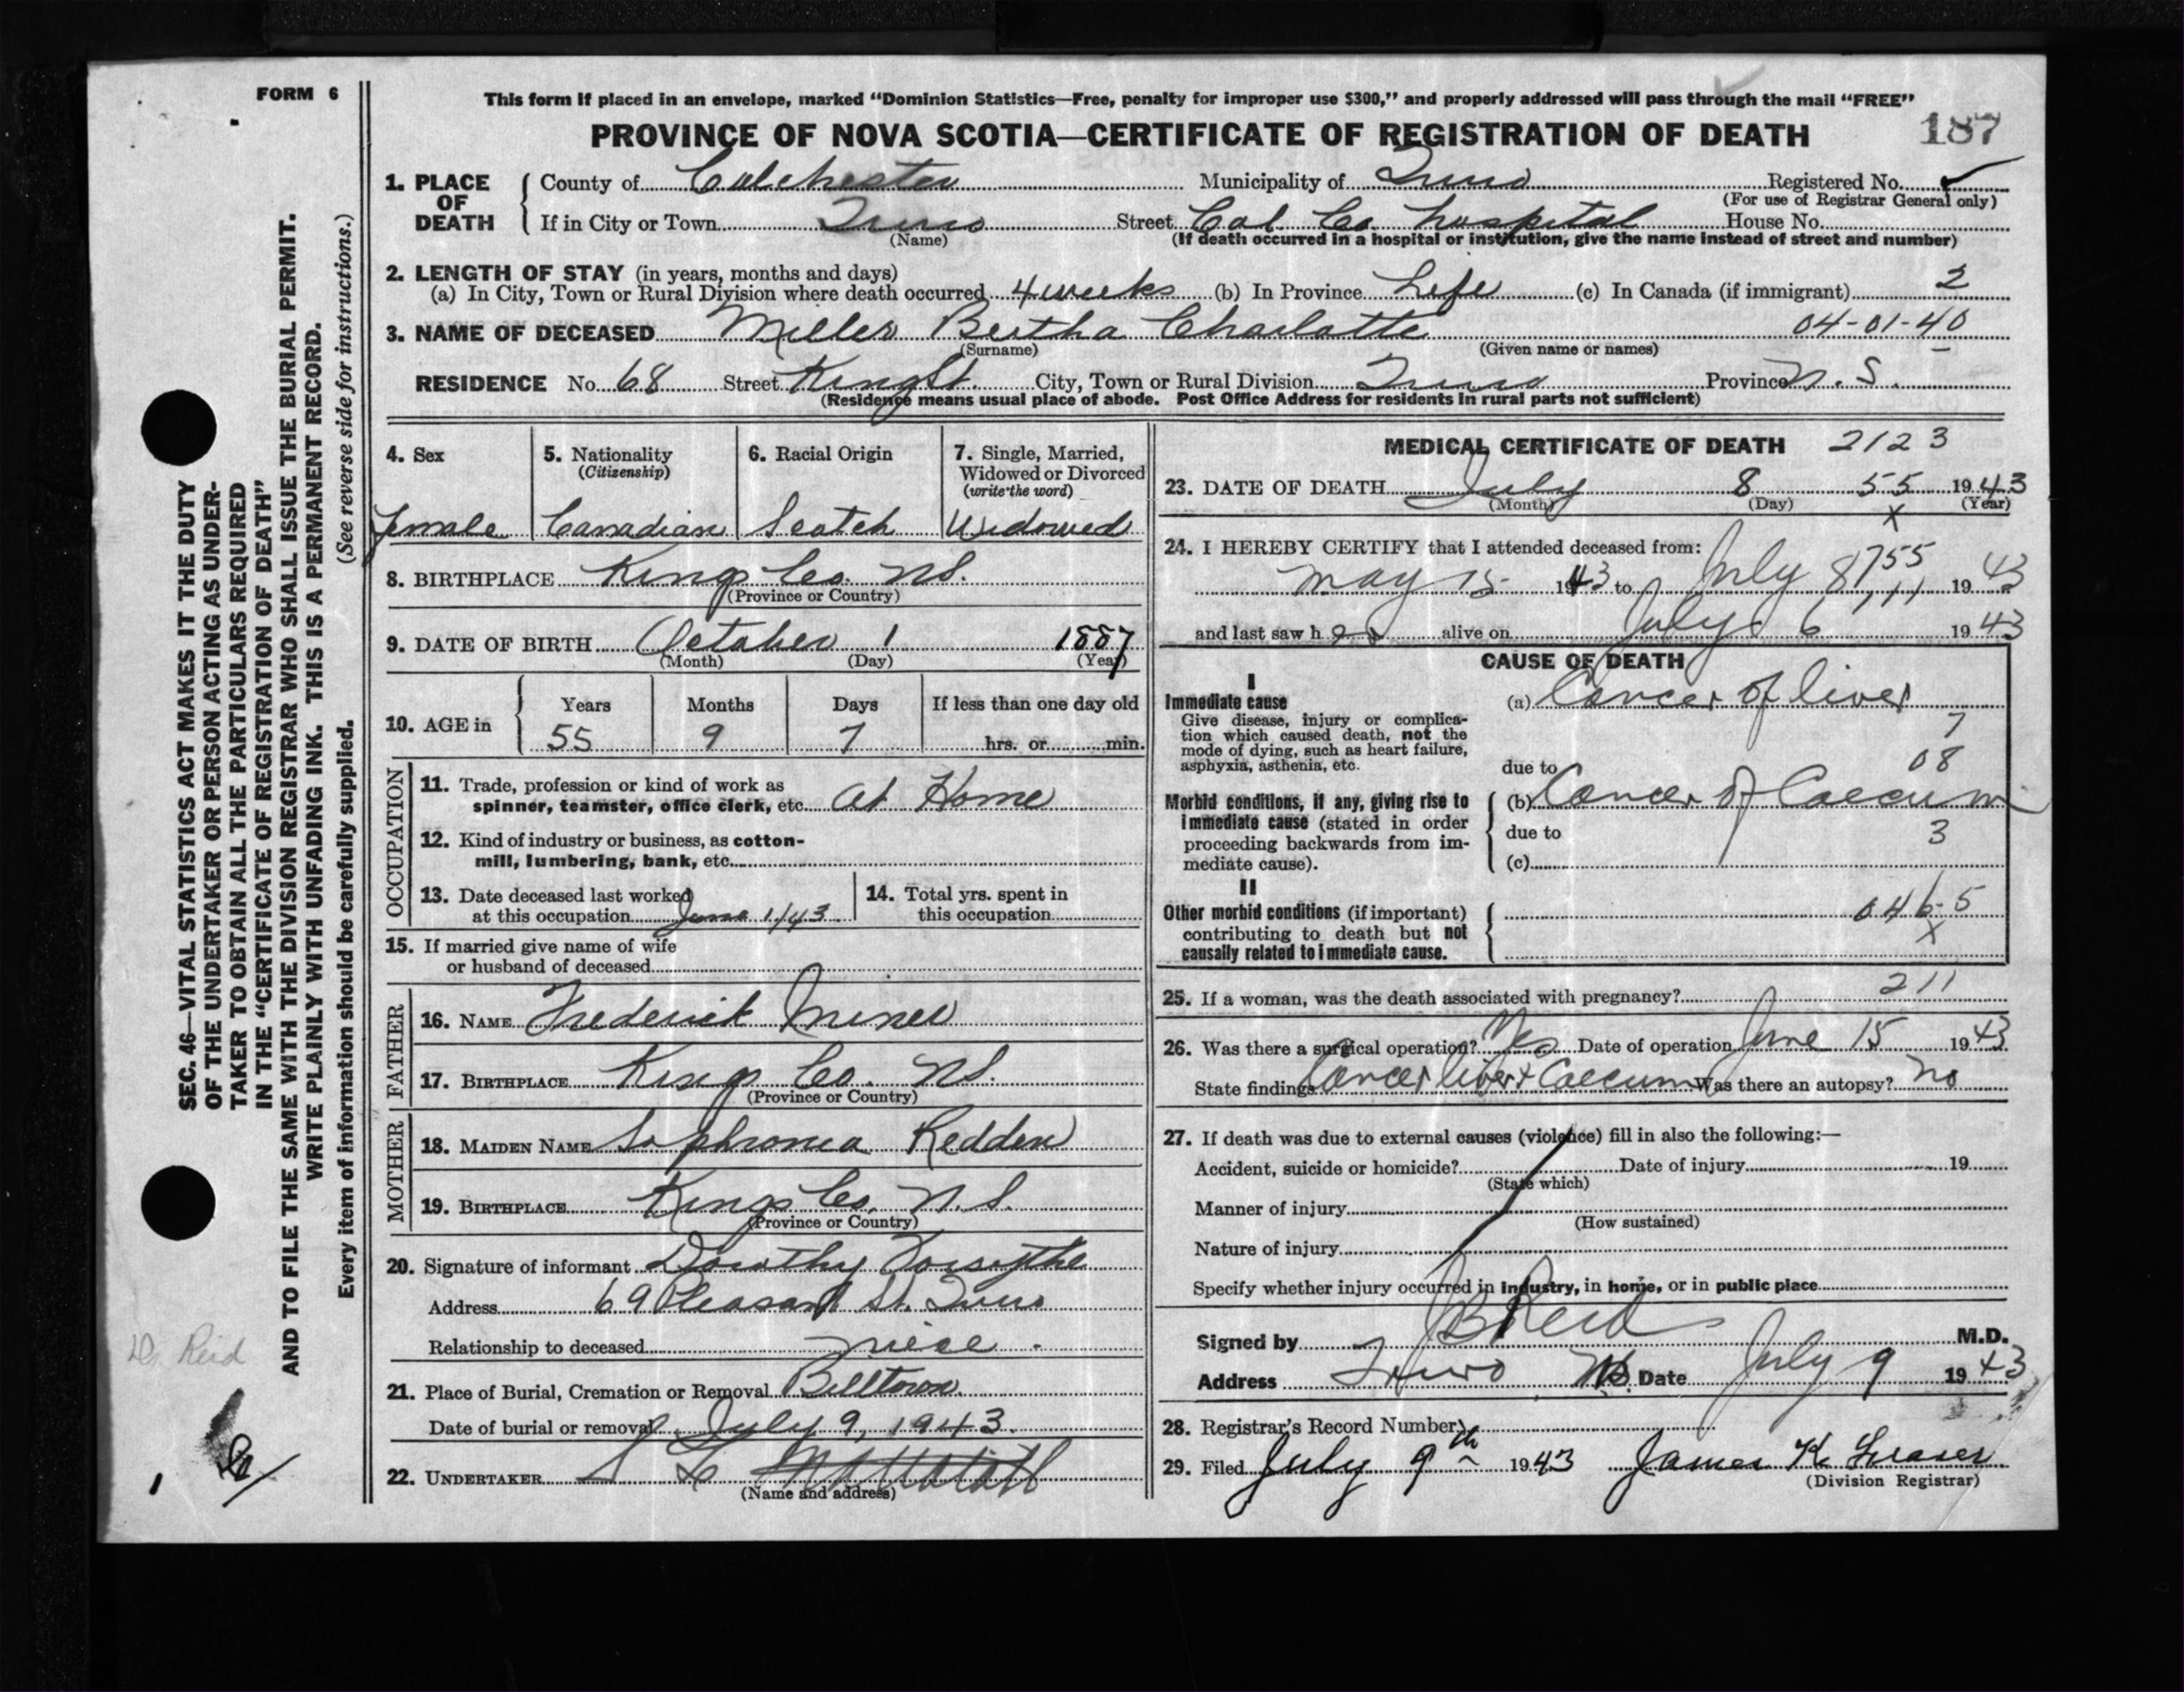 FORM 6
This form if placed in an envelope, marked “Dominion Statistics—Free, penalty for improper use $300,” and properly addressed will pass through the mail “FREE”
PROVINCE OF NOVA SCOTIA—CERTIFICATE OF REGISTRATION OF DEATH 187
1. PLACE OF DEATH
County of Colchester Municipality of Truro Registered No. ✓
(For use of Registrar General only)
If in City or Town Truro Street Col. Co. hospital House No.
(Name) (If death occurred in a hospital or institution, give the name instead of street and number)
2. LENGTH OF STAY (in years, months and days)
(a) In City, Town or Rural Division where death occurred 4 weeks (b) In Province Life (c) In Canada (if immigrant) 2
3. NAME OF DECEASED Miller Bertha Charlotte 04-01-40
(Surname) (Given name or names)
RESIDENCE No. 68 Street King St. City, Town or Rural Division Truro Province N. S.
(Residence means usual place of abode. Post Office Address for residents in rural parts not sufficient)
4. Sex
female
5. Nationality
(Citizenship)
Canadian
6. Racial Origin
Scotch
7. Single, Married,
Widowed or Divorced
(write the word)
Widowed
8. BIRTHPLACE King Co. NS.
(Province or Country)
9. DATE OF BIRTH October 1 1887
(Month) (Day) (Year)
10. AGE in
Years Months Days If less than one day old
55 9 7 hrs. or min.
OCCUPATION
11. Trade, profession or kind of work as
spinner, teamster, office clerk, etc. at Home
12. Kind of industry or business, as cotton-
mill, lumbering, bank, etc.
13. Date deceased last worked
at this occupation June 1/43
14. Total yrs. spent in
this occupation
15. If married give name of wife
or husband of deceased
FATHER
16. NAME Frederick Miner
17. BIRTHPLACE King Co. NS.
(Province or Country)
MOTHER
18. MAIDEN NAME Sophronia Redden
19. BIRTHPLACE Kings Co. N.S.
(Province or Country)
20. Signature of informant Dorothy Forsythe
Address 69 Pleasant St. Truro
Relationship to deceased niece.
21. Place of Burial, Cremation or Removal Billtown.
Date of burial or removal July 9, 1943.
22. UNDERTAKER
(Name and address)
MEDICAL CERTIFICATE OF DEATH 2123
23. DATE OF DEATH July 8 55 1943
(Month) (Day) X (Year)
24. I HEREBY CERTIFY that I attended deceased from:
May 15 1943 to July 8 1943
755
and last saw her alive on July 6 1943
CAUSE OF DEATH
I
Immediate cause
Give disease, injury or complica-
tion which caused death, not the
mode of dying, such as heart failure,
asphyxia, asthenia, etc.
(a) Cancer of liver
7
08
due to
Morbid conditions, if any, giving rise to
immediate cause (stated in order
proceeding backwards from im-
mediate cause).
(b) Cancer of Caecum
due to 3
(c)
II
Other morbid conditions (if important)
contributing to death but not
causally related to immediate cause.
046-5
X
211
25. If a woman, was the death associated with pregnancy?
26. Was there a surgical operation? Yes Date of operation June 15 1943
State findings Cancer liver + Caecum Was there an autopsy? No
27. If death was due to external causes (violence) fill in also the following:—
Accident, suicide or homicide? Date of injury 19
(State which)
Manner of injury
(How sustained)
Nature of injury
Specify whether injury occurred in industry, in home, or in public place
Signed by JB Reid M.D.
Address Truro NS. Date July 9 1943
28. Registrar's Record Number
29. Filed July 9th 1943 James K Fraser
(Division Registrar)
SEC. 46—VITAL STATISTICS ACT MAKES IT THE DUTY
OF THE UNDERTAKER OR PERSON ACTING AS UNDER-
TAKER TO OBTAIN ALL THE PARTICULARS REQUIRED
IN THE “CERTIFICATE OF REGISTRATION OF DEATH”
AND TO FILE THE SAME WITH THE DIVISION REGISTRAR WHO SHALL ISSUE THE BURIAL PERMIT.
WRITE PLAINLY WITH UNFADING INK. THIS IS A PERMANENT RECORD.
Every item of information should be carefully supplied. (See reverse side for instructions.)
Dr Reid